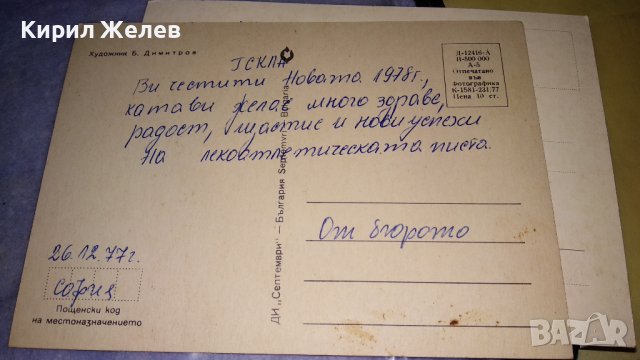 Кирил Желев
Художник Б. Димитров
Д-12416-А
П-500 000
А-5
Отпечатано
във
Фотографика
К-1581-231/77
Цена 10 ст.
Ви честити Новата 1978г.,
желае много здраве,
радост, щастие и нови успехи
На лекоатлетическата писта.
ДИ „Септември" — България Septemvri Bulgaria
От бюрото
26.12.77г.
София
Пощенски код
на местоназначението
BAZAR